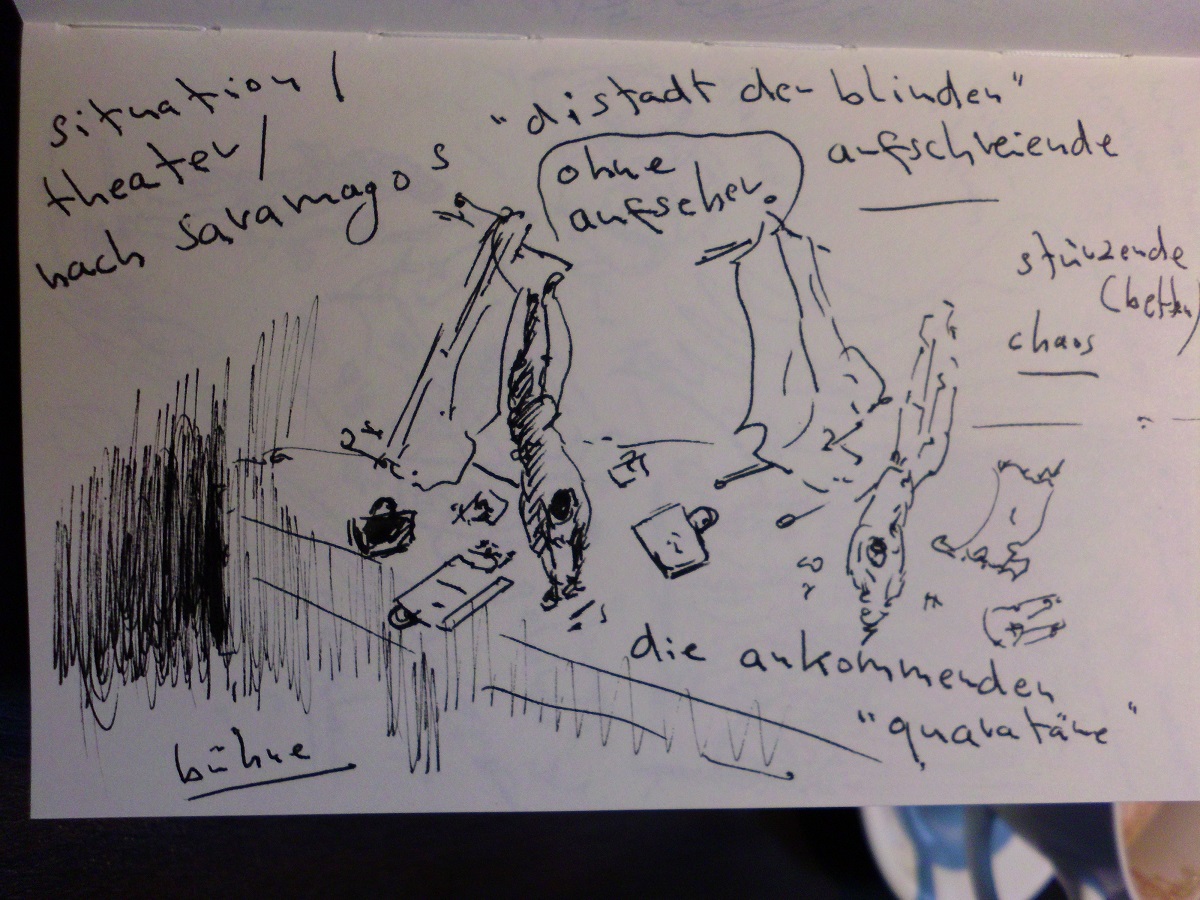 situation /
theater /
nach saramagos
"distadt der blinden"
ohne
aufseher.
aufschreiende
stürzende
(betten)
chaos
die ankommenden
"quaratäne"
bühne